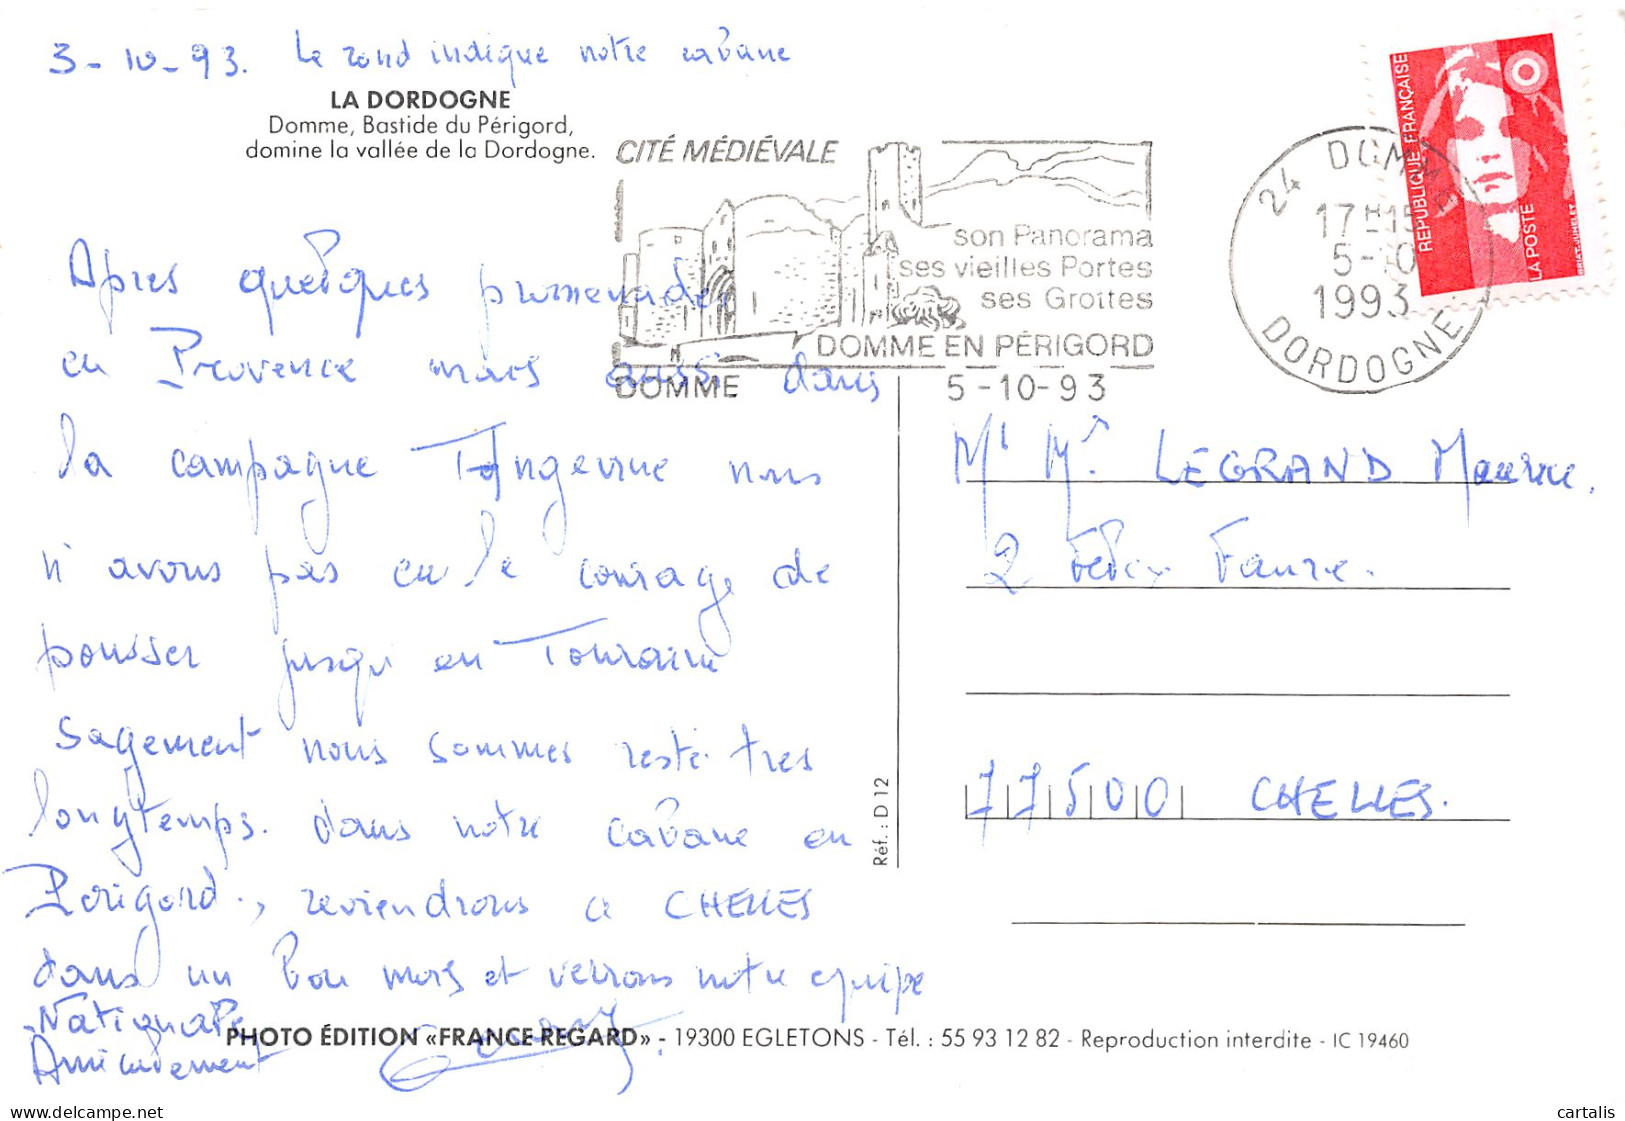 3-10-93. Le rond indique notre cabane
LA DORDOGNE
Domme, Bastide du Périgord,
domine la vallée de la Dordogne.
CITÉ MÉDIÉVALE
son Panorama
ses vieilles Portes
ses Grottes
DOMME EN PÉRIGORD
DOMME 5-10-93
24 DOMME
17H15
5-10
1993
DORDOGNE
RÉPUBLIQUE FRANÇAISE
LA POSTE
BRIAT-JUMELET
Apres quelques promenades
en Provence mais aussi dans
la campagne Tangevine nous
n'avons pas eu le courage de
pousser jusqu'en Touraine
Sagement nous sommes resté tres
longtemps. dans notre cabane en
Périgord., reviendrons a CHELLES
dans un bon mois et verrons notre equipe
Nationale
Amicalement
Mr Mr. LEGRAND Maurice.
2 Felix Faure.
77500 CHELLES.
Réf. : D 12
PHOTO ÉDITION «FRANCE REGARD» - 19300 EGLETONS - Tél. : 55 93 12 82 - Reproduction interdite - IC 19460
www.delcampe.net
cartalis